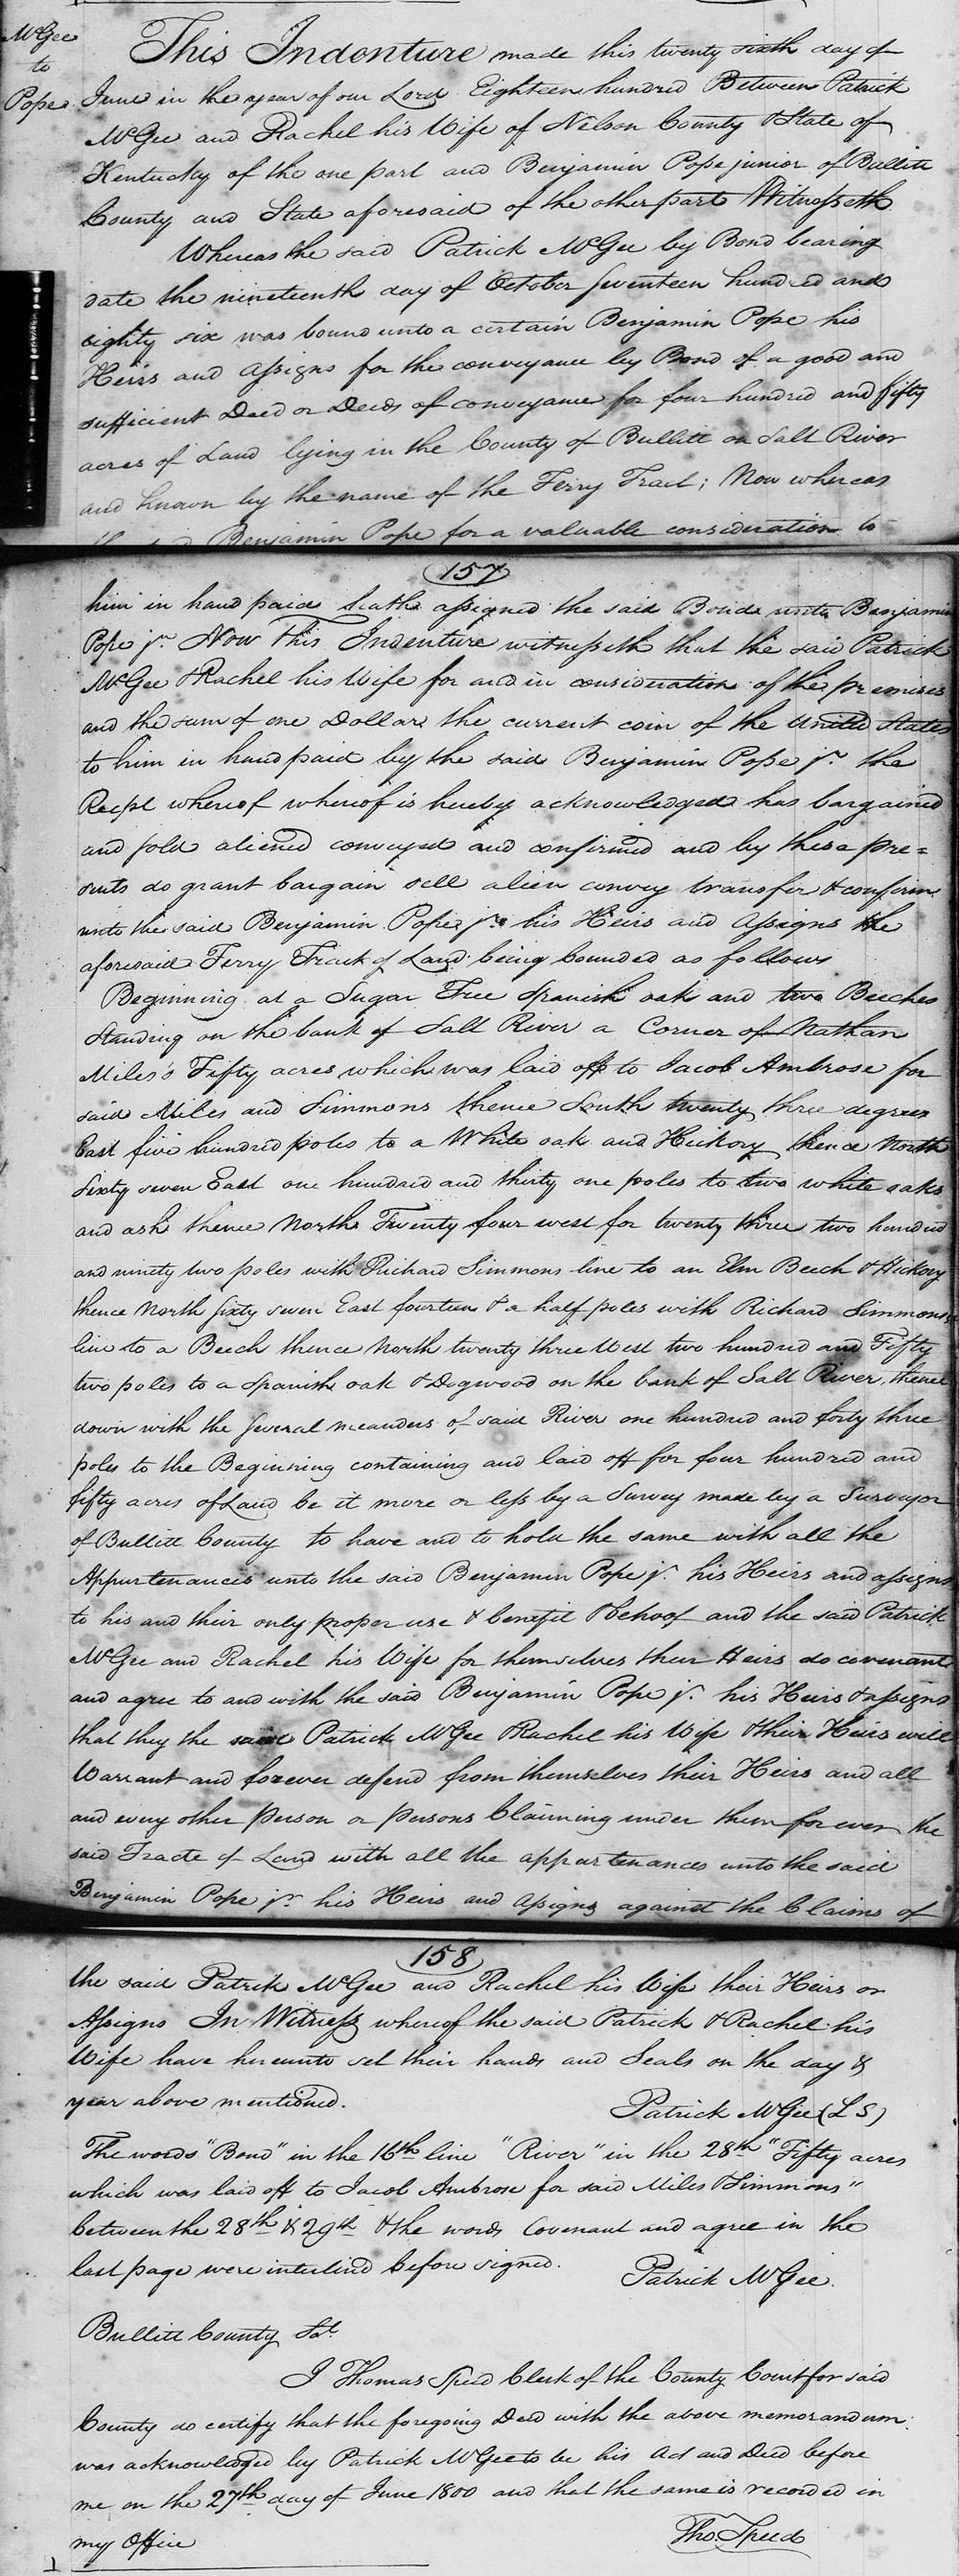 McGee
to
Pope
This Indenture made this twenty sixth day of
June in the year of our Lord Eighteen hundred Between Patrick
McGee and Rachel his Wife of Nelson County & State of
Kentucky of the one part and Benjamin Pope junior of Bullitt
County and State aforesaid of the other part Witnesseth
Whereas the said Patrick McGee by Bond bearing
date the nineteenth day of October Seventeen hundred and
eighty six was bound unto a certain Benjamin Pope his
Heirs and Assigns for the conveyance by Bond of a good and
sufficient Deed or Deeds of conveyance for four hundred and fifty
acres of Land lying in the County of Bullitt on Salt River
and known by the name of the Ferry Tract; Now whereas
the said Benjamin Pope for a valuable consideration to
157
him in hand paid hath assigned the said Bond unto Benjamin
Pope jr. Now this Indenture witnesseth that the said Patrick
McGee & Rachel his Wife for and in consideration of the premises
and the sum of one Dollar the current coin of the United States
to him in hand paid by the said Benjamin Pope jr. the
Recpt whereof whereof is hereby acknowledged has bargained
and sold aliened conveyed and confirmed and by these pre=
sents do grant bargain sell alien convey transfer & confirm
unto the said Benjamin Pope jr. his Heirs and Assigns the
aforesaid Ferry Track of Land being bounded as follows
Beginning at a Sugar Tree Spanish oak and two Beeches
Standing on the bank of Salt River a Corner of Nathan
Miles's Fifty acres which was laid off to Jacob Ambrose for
said Miles and Simmons thence South twenty three degrees
East five hundred poles to a White oak and Hickory thence North
Sixty seven East one hundred and thirty one poles to two white oaks
and ash thence North Twenty four west for twenty three two hundred
and ninety two poles with Richard Simmons line to an Elm Beech & Hickory
thence North Sixty seven East fourteen & a half poles with Richard Simmons
line to a Beech thence North twenty three West two hundred and Fifty
two poles to a Spanish oak & Dogwood on the bank of Salt River, thence
down with the several meanders of said River one hundred and forty three
poles to the Beginning containing and laid off for four hundred and
fifty acres of Land be it more or less by a Survey made by a Surveyor
of Bullitt County to have and to hold the same with all the
Appurtenances unto the said Benjamin Pope jr. his Heirs and assigns
to his and their only proper use & benefit & behoof and the said Patrick
McGee and Rachel his Wife for themselves their Heirs do covenant
and agree to and with the said Benjamin Pope jr. his Heirs & assigns
that they the said Patrick McGee & Rachel his Wife & their Heirs will
Warrant and forever defend from themselves their Heirs and all
and every other person or persons Claiming under them for ever the
said Tracte of Land with all the appurtenances unto the said
Benjamin Pope jr. his Heirs and Assigns against the Claims of
158
the said Patrick McGee and Rachel his Wife their Heirs or
Assigns In Witness whereof the said Patrick & Rachel his
Wife have hereunto set their hands and Seals on the day &
year above mentioned.
Patrick McGee (L S)
The words "Bond" in the 16th line "River" in the 28th "Fifty acres
which was laid off to Jacob Ambrose for said Miles & Simmons"
between the 28th & 29th & the words Covenant and agree in the
last page were interlin'd before signed.
Patrick McGee.
Bullitt County Sct.
I Thomas Speed Clerk of the County Court for said
County do certify that the foregoing Deed with the above memorandum
was acknowledged by Patrick McGee to be his Act and Deed before
me on the 27th day of June 1800 and that the same is recorded in
my Office
Tho. Speed